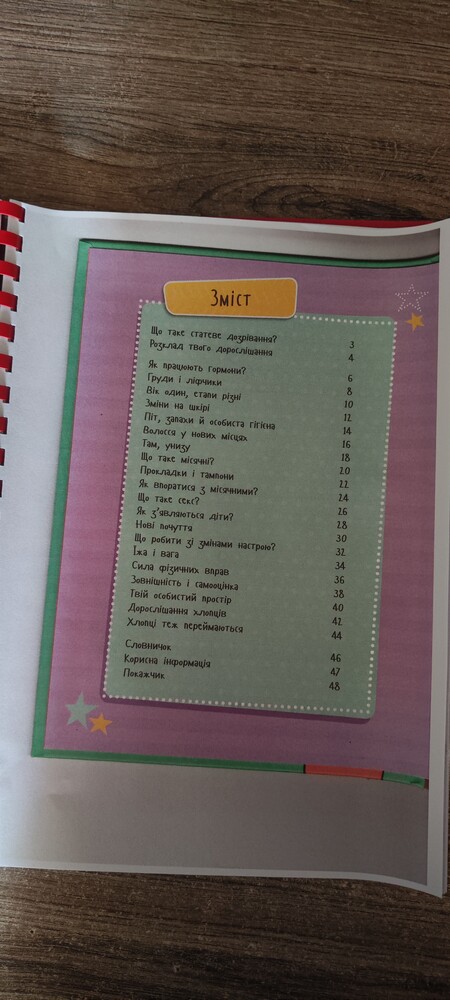 Зміст
Що таке статеве дозрівання? 3
Розклад твого дорослішання 4
Як працюють гормони? 6
Груди і ліфчики 8
Вік один, етапи різні 10
Зміни на шкірі 12
Піт, запахи й особиста гігієна 14
Волосся у нових місцях 16
Там, унизу 18
Що таке місячні? 20
Прокладки і тампони 22
Як впоратися з місячними? 24
Що таке секс? 26
Як з'являються діти? 28
Нові почуття 30
Що робити зі змінами настрою? 32
Їжа і вага 34
Сила фізичних вправ 36
Зовнішність і самооцінка 38
Твій особистий простір 40
Дорослішання хлопців 42
Хлопці теж переймаються 44
Словничок 46
Корисна інформація 47
Покажчик 48